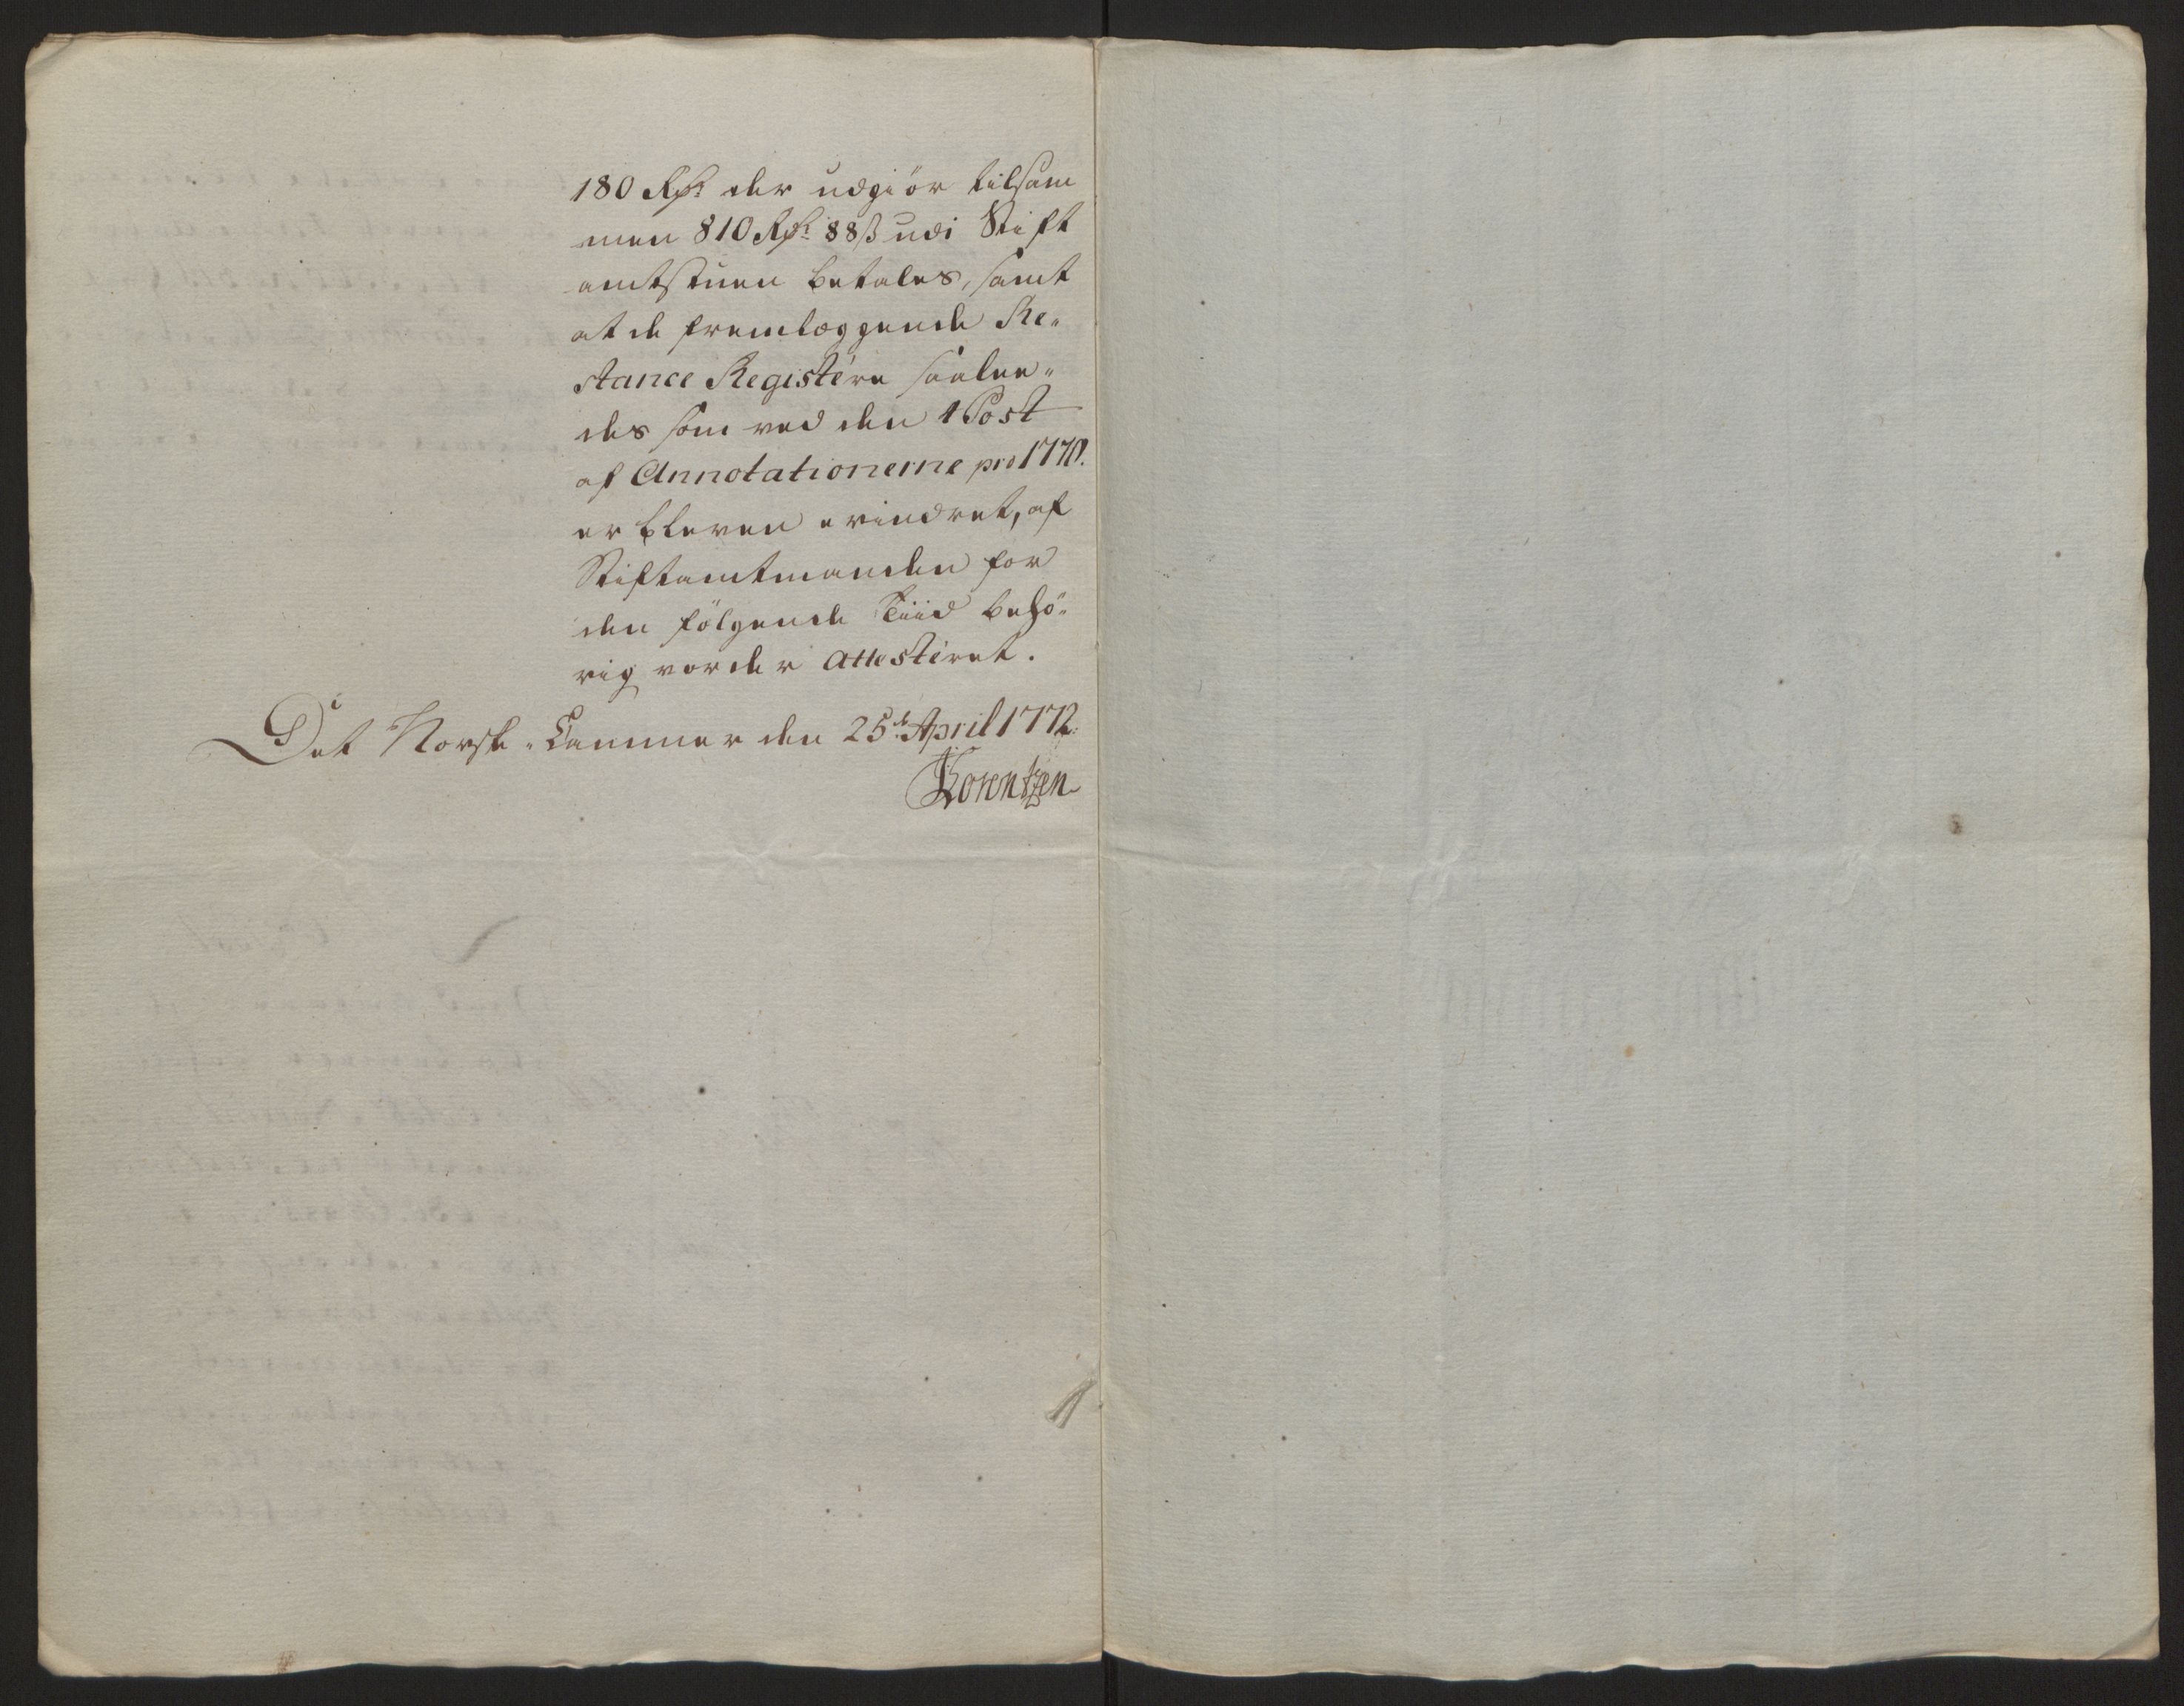 180 Rdr. der udgiör tilsam
men 810 Rdr. 88 ß udi Stift
amtstuen betales, samt
at de fremlæggende Re„
stance Registere saalee„
des som ved den 1 Post
af Annotationerne pro 1770.
er bleven erindret, af
Stiftamtmanden for
den fölgende Tiid behö„
rig vorder attesteret.
Det Norske„ Cammer den 25de April 1772.
Lorentzen